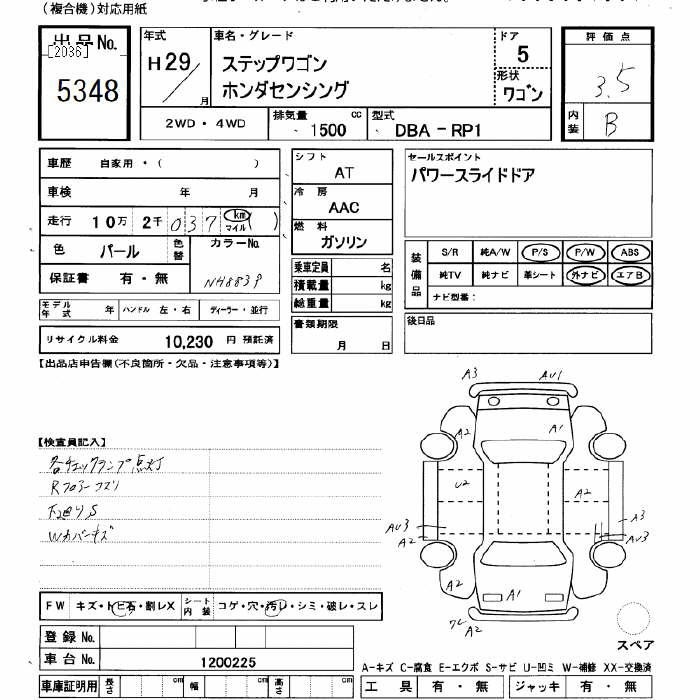 (複合機)対応用紙
出品No. [2036]
5348
年式 H29 / 月
車名・グレード
ステップワゴン
ホンダセンシング
ドア 5
形状 ワゴン
評価点 3.5
内装 B
2WD・4WD
排気量 1500 cc
型式 DBA-RP1
車歴 自家用・( )
車検 年 月
走行 10万 2千 037 km マイル ( )
色 パール 色替 カラーNo. NH883P
保証書 有・無
モデル年式 年 ハンドル 左・右 ディーラー・並行
リサイクル料金 10,230 円 預託済
シフト AT
冷房 AAC
燃料 ガソリン
乗車定員 名
積載量 kg
総重量 kg
書類期限
月 日
セールスポイント
パワースライドドア
装備品
S/R 純A/W P/S P/W ABS
純TV 純ナビ 革シート 外ナビ エアB
ナビ型番:
後日品
【出品店申告欄(不良箇所・欠品・注意事項等)】
【検査員記入】
各チェックランプ点灯
Rフロアーコスリ
下廻りS
Wカバーキズ
A3 AU1
A2 A1
U2 A2
AU3 A2
A3 AU3
A2 A1 A2
ワレ A2
スペア
FW キズ・トビ石・割レX シート内装 コゲ・穴・汚レ・シミ・破レ・スレ
登録No.
車台No. 1200225
車庫証明用 長さ cm 幅 cm 高さ cm
A-キズ C-腐食 E-エクボ S-サビ U-凹ミ W-補修 XX-交換済
工具 有・無 ジャッキ 有・無